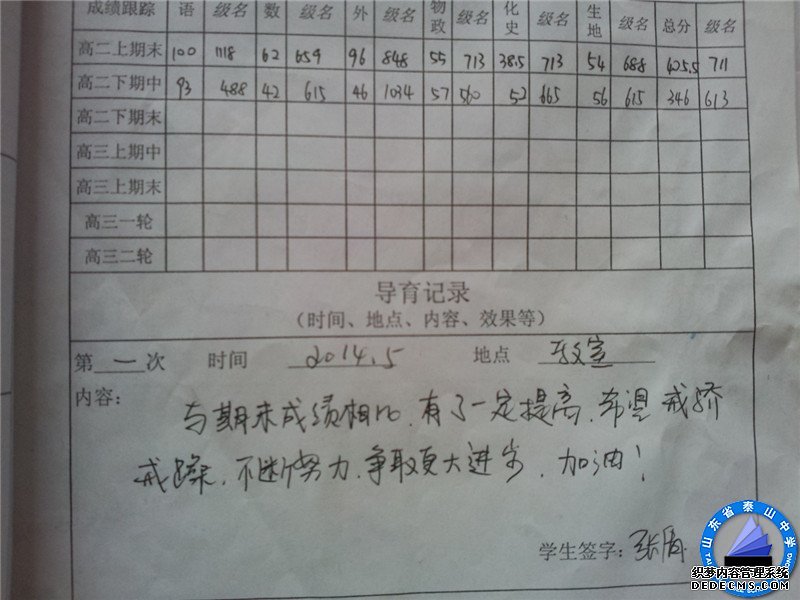 成绩跟踪 语 级名 数 级名 外 级名 物政 级名 化史 级名 生地 级名 总分 级名
高二上期末 100 1118 62 659 96 848 55 713 38.5 713 54 688 405.5 711
高二下期中 93 488 42 615 46 1034 57 560 52 665 56 615 346 613
高二下期末
高三上期中
高三上期末
高三一轮
高三二轮
导育记录
(时间、地点、内容、效果等)
第一次 时间 2014.5 地点 教室
内容:
与期末成绩相比,有了一定提高,希望戒骄
戒躁,不断努力,争取更大进步,加油!
学生签字:张
山东省泰山中学
织梦内容管理系统
DEDECMS.COM